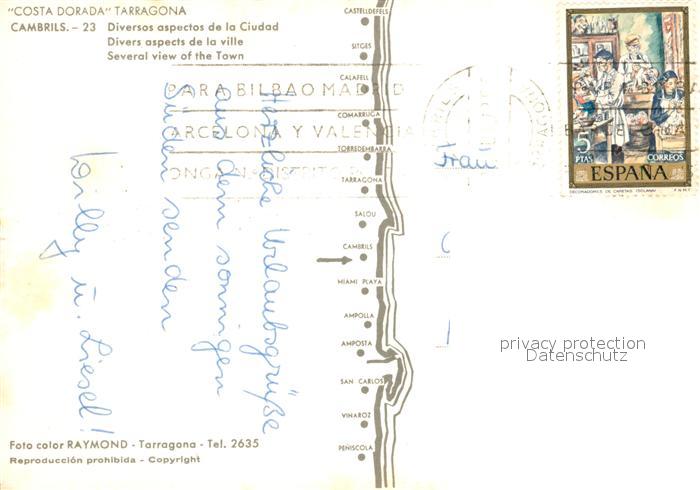 "COSTA DORADA" TARRAGONA
CAMBRILS. - 23 Diversos aspectos de la Ciudad
Divers aspects de la ville
Several view of the Town
PARA BILBAO MADRID
ARCELONA Y VALENCIA
ONGA N. DISTRITO
Herzliche Urlaubsgrüße
aus dem sonnigen
Süden senden
Willy u. Liesel!
Foto color RAYMOND - Tarragona - Tel. 2635
Reproducción prohibida - Copyright
CASTELLDEFELS
SITGES
CALAFELL
COMARRUGA
TORREDEMBARRA
TARRAGONA
SALOU
CAMBRILS
MIAMI PLAYA
AMPOLLA
AMPOSTA
SAN CARLOS
VINAROZ
PEÑISCOLA
Frau
5
PTAS
CORREOS
ESPAÑA
DECORADORES DE CARETAS (SOLANA)
F.N.M.T.
privacy protection
Datenschutz